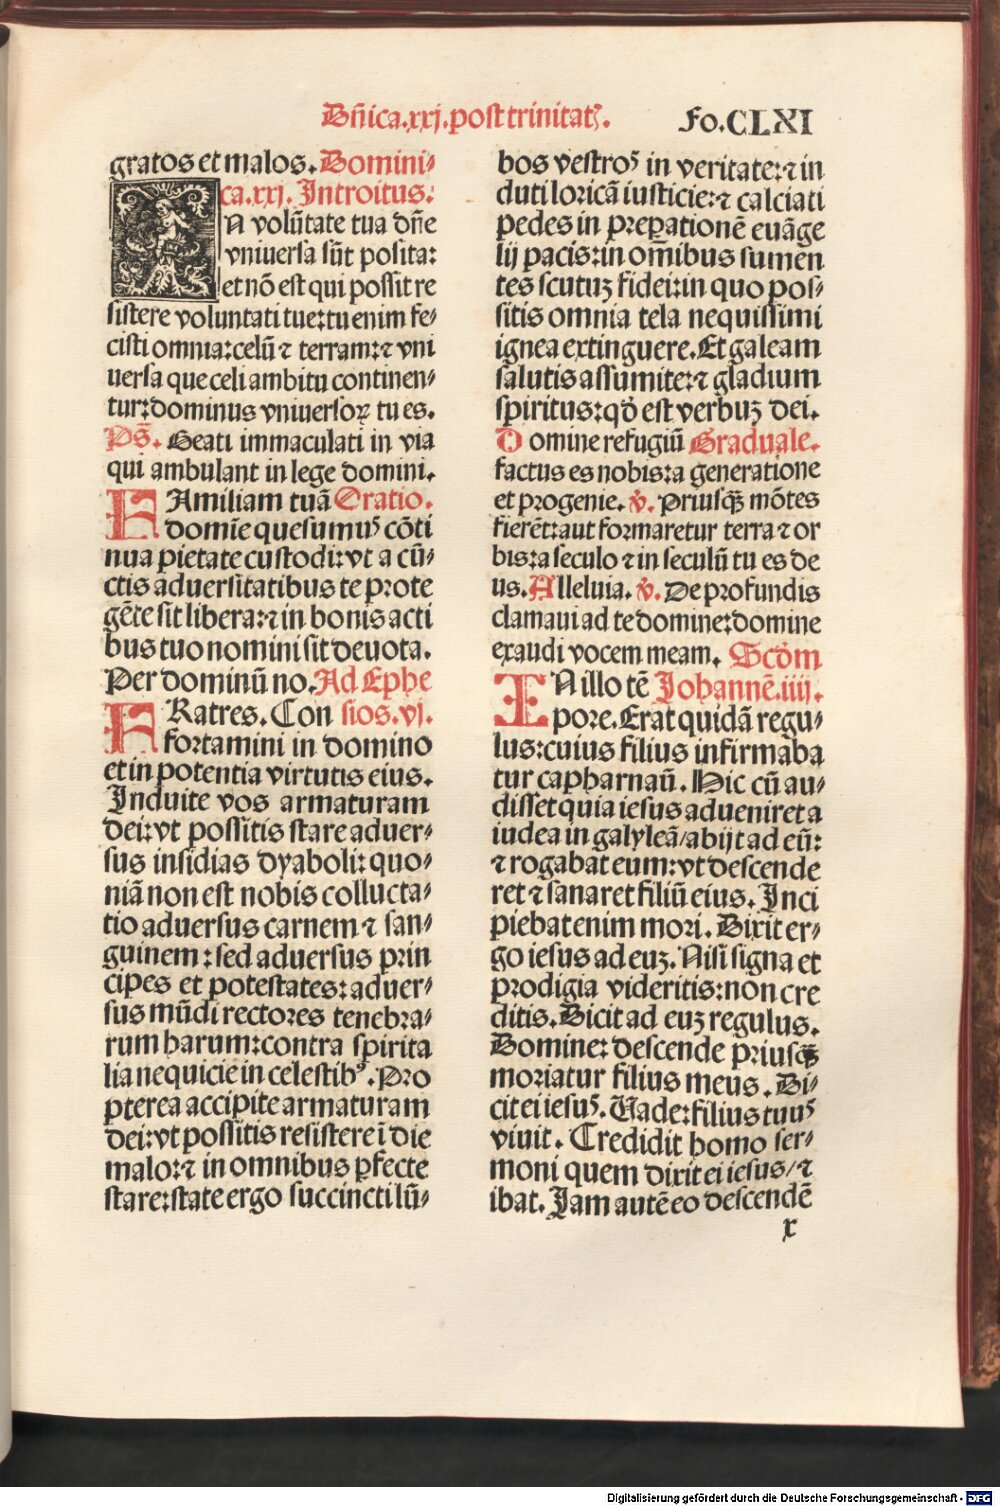 Dñica.xxj.post trinitatꝭ.
Fo.CLXI
gratos et malos. Domini⸗
ca.xxj. Introitus.
IN volũtate tua dñe
vniuersa sũt posita:
et nõ est qui possit re
sistere voluntati tue: tu enim fe⸗
cisti omnia: celũ ⁊ terram: ⁊ vni
uersa que celi ambitu continen⸗
tur: dominus vniuersoꝝ tu es.
Ps̃. Beati immaculati in via
qui ambulant in lege domini.
FAmiliam tuã Oratio.
domĩe quesumuꝰ cõti
nua pietate custodi: vt a cũ⸗
ctis aduersitatibus te prote
gẽte sit libera: ⁊ in bonis acti
bus tuo nomini sit deuota.
Per dominũ no. Ad Ephe
FRatres. Con sios.vj.
fortamini in domino
et in potentia virtutis eius.
Induite vos armaturam
dei: vt possitis stare aduer⸗
sus insidias dyaboli: quo⸗
niã non est nobis collucta⸗
tio aduersus carnem ⁊ san⸗
guinem: sed aduersus prin
cipes et potestates: aduer⸗
sus mũdi rectores tenebra⸗
rum harum: contra spirita
lia nequicie in celestibꝰ. Pro
pterea accipite armaturam
dei: vt possitis resistere ĩ die
malo: ⁊ in omnibus ꝑfecte
stare: state ergo succincti lũ⸗
bos vestroꝰ in veritate: ⁊ in
duti loricã iusticie: ⁊ calciati
pedes in preparationẽ euãge
lij pacis: in om̃ibus sumen
tes scutuꝫ fidei: in quo pos⸗
sitis omnia tela nequissimi
ignea extinguere. Et galeam
salutis assumite: ⁊ gladium
spiritus: qđ est verbuꝫ dei.
Domine refugiũ Graduale.
factus es nobis: a generatione
et progenie. ℣. Priusqꝫ̃ mõtes
fierẽt: aut formaretur terra ⁊ or
bis: a seculo ⁊ in seculũ tu es de
us. Alleluia. ℣. De profundis
clamaui ad te domine: domine
exaudi vocem meam. Scđm
IN illo tẽ Johannẽ.iiij.
pore. Erat quidã regu⸗
lus: cuius filius infirmaba
tur capharnaũ. Hic cũ au⸗
disset quia iesus adueniret a
iudea in galyleã/ abijt ad eũ:
⁊ rogabat eum: vt descende
ret ⁊ sanaret filiũ eius. Inci
piebat enim mori. Dixit er⸗
go iesus ad euꝫ. Nisi signa et
prodigia videritis: non cre
ditis. Dicit ad euꝫ regulus.
Domine: descende priusqꝫ̃
moriatur filius meus. Di⸗
cit ei iesuꝰ. Uade: filius tuuꝰ
viuit. Credidit homo ser⸗
moni quem dixit ei iesus/ ⁊
ibat. Jam autẽ eo descendẽ
x
Digitalisierung gefördert durch die Deutsche Forschungsgemeinschaft - DFG